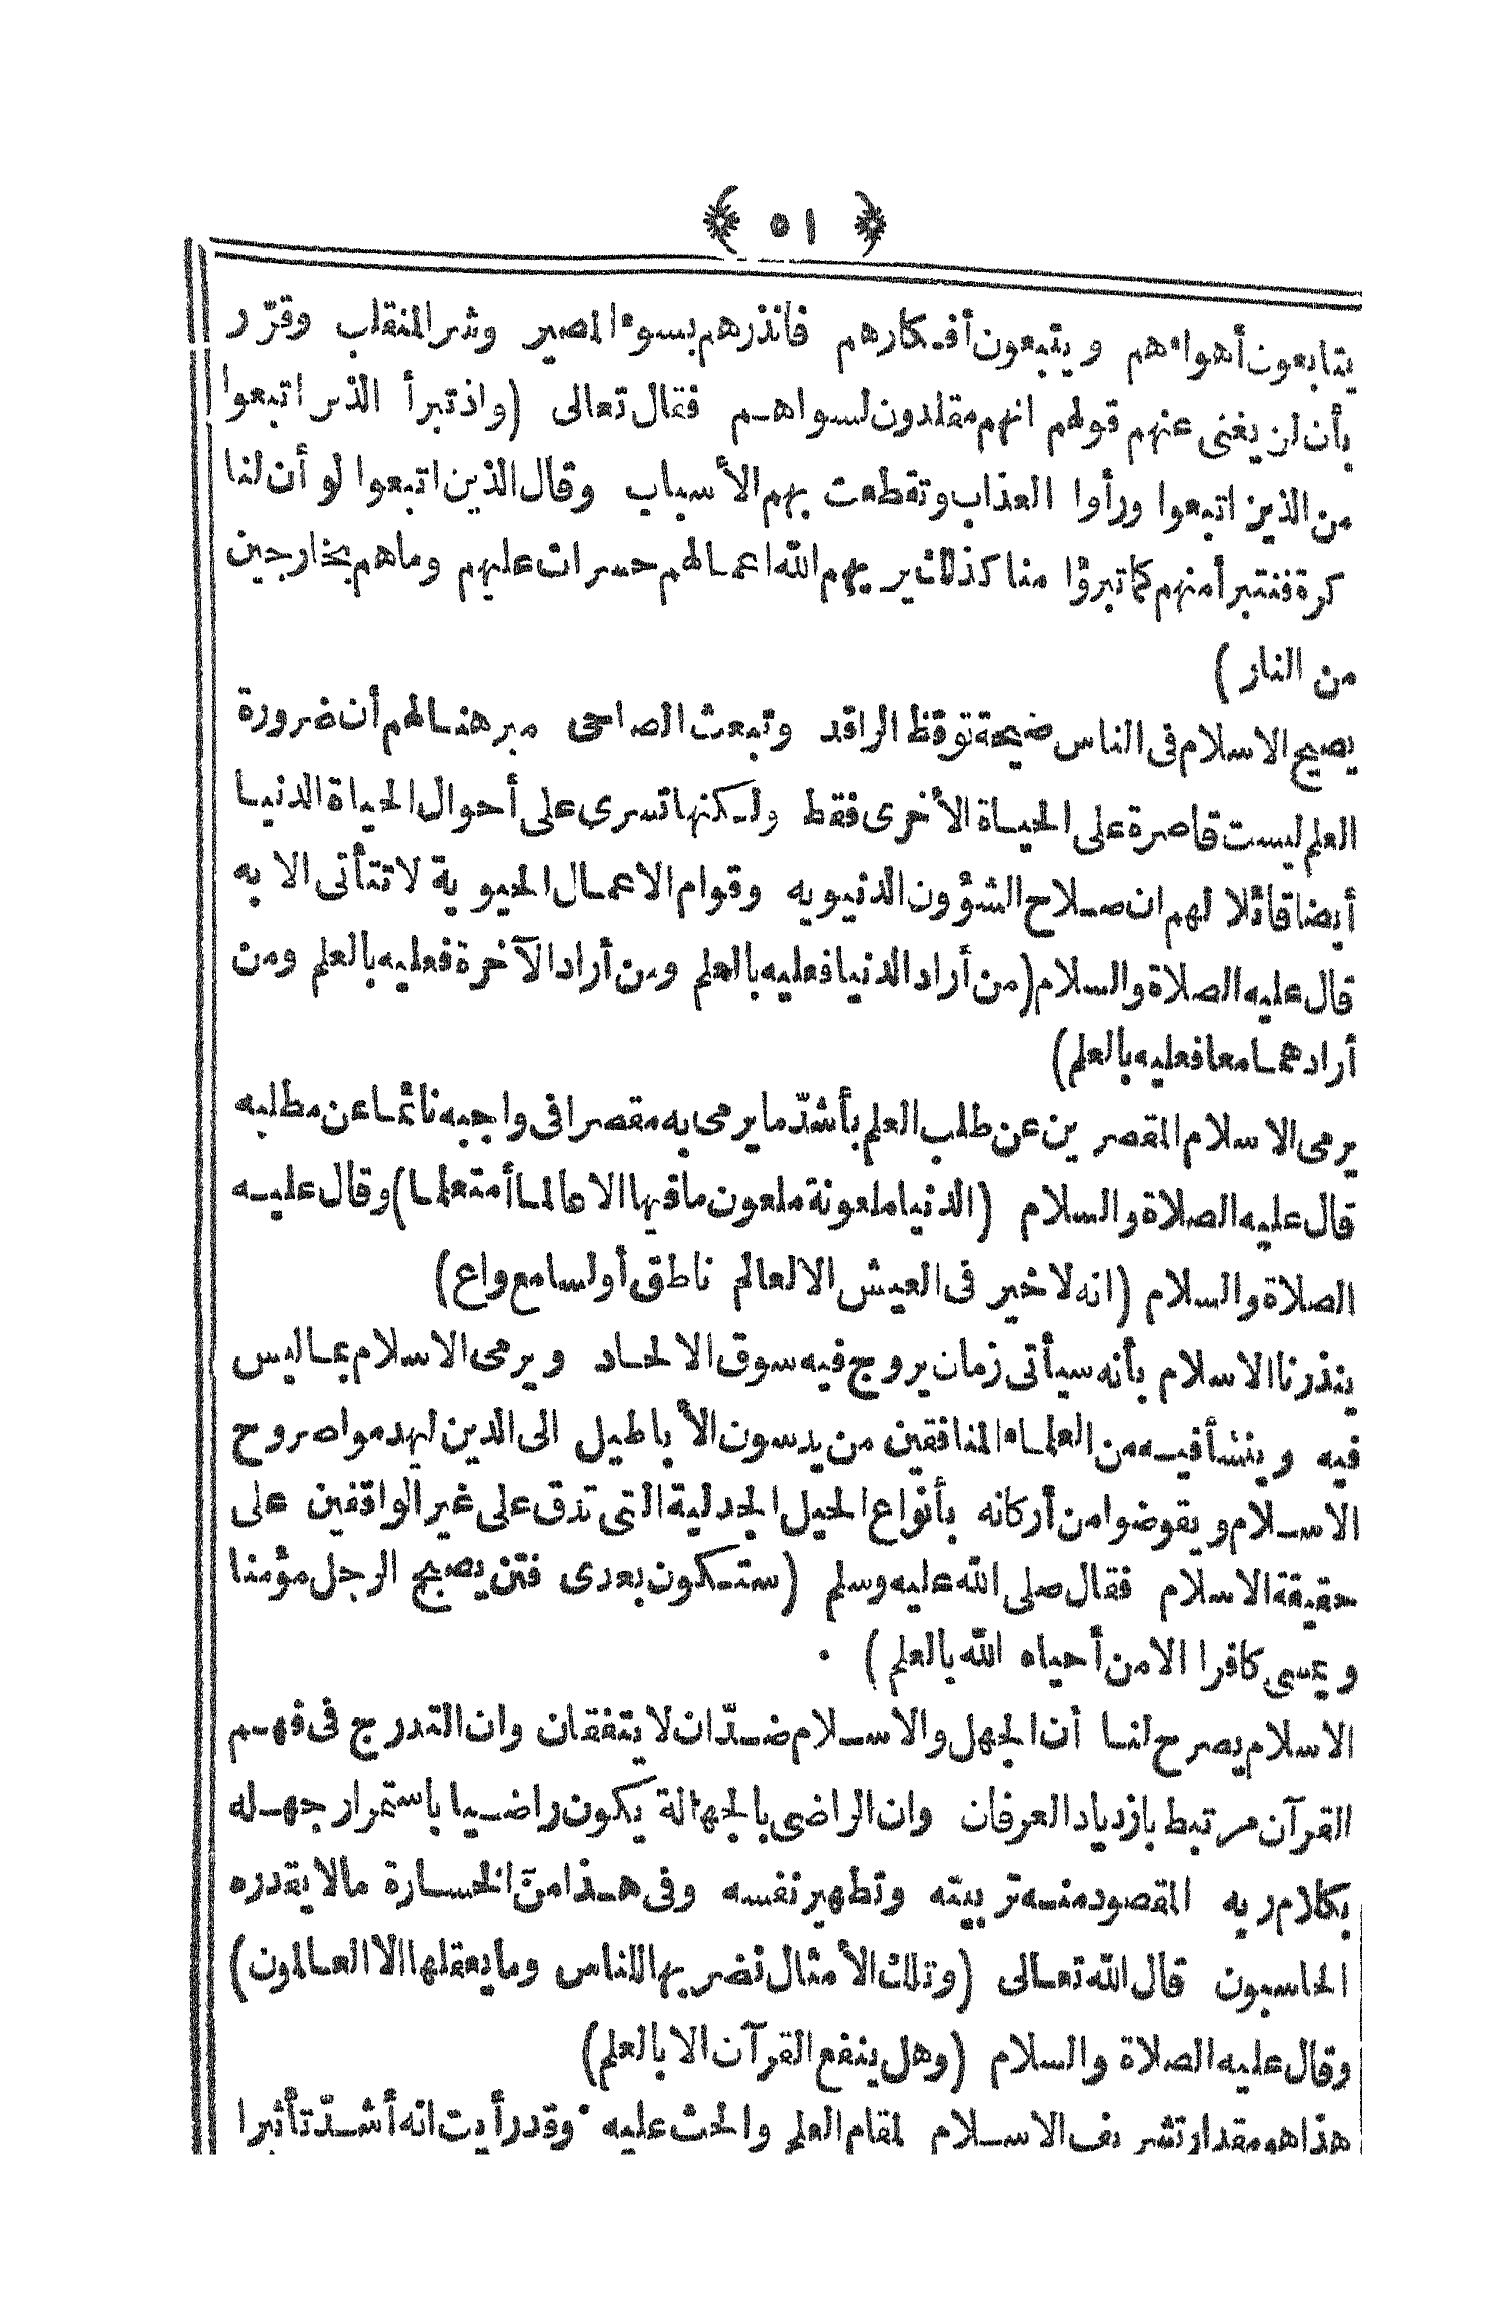 ﴿ ٥١ ﴾
يتابعون أهواءهم ويتبعون أفكارهم فانذرهم بسوء المصير وشر المنقلب وقرّر
بأن لن يغنى عنهم قولهم انهم مقلدون لسواهم فقال تعالى (واذ تبرأ الذين اتبعوا
من الذين اتبعوا ورأوا العذاب وتقطعت بهم الأسباب وقال الذين اتبعوا لو أن لنا
كرة فنتبرأ منهم كما تبرؤا منا كذلك يريهم الله اعمالهم حسرات عليهم وماهم بخارجين
من النار)
يصيح الاسلام فى الناس ضيحة توقظ الراقد وتبعث الصاحى مبرهنا لهم أن ضرورة
العلم ليست قاصرة على الحياة الأخرى فقط ولكنها تسرى على أحوال الحياة الدنيا
أيضا قائلا لهم ان صلاح الشؤون الدنيويه وقوام الاعمال الحيوية لا تتأتى الا به
قال عليه الصلاة والسلام (من أراد الدنيا فعليه بالعلم ومن أراد الآخرة فعليه بالعلم ومن
أرادهما معا فعليه بالعلم)
يرمى الاسلام المقصرين عن طلب العلم بأشدّ ما يرمى به مقصرا فى واجبه نائما عن مطلبه
قال عليه الصلاة والسلام (الدنيا ملعونة ملعون مافيها الا عالما أمتعلما) وقال عليه
الصلاة والسلام (انه لا خير فى العيش الا لعالم ناطق أو لسامع واع)
ينذرنا الاسلام بأنه سيأتى زمان يروج فيه سوق الالحاد ويرمى الاسلام بما ليس
فيه وينشأ فيه من العلماء المنافقين من يدسون الأباطيل الى الدين ليهدموا صروح
الاسلام ويقوضوا من أركانه بأنواع الحيل الجدلية التى تدق على غير الواقفين على
حقيقة الاسلام فقال صلى الله عليه وسلم (ستكون بعدى فتن يصبح الرجل مؤمنا
ويمسى كافرا الا من أحياه الله بالعلم) ·
الاسلام يصرح لنا أن الجهل والاسلام ضدّان لا يتفقان وان التدرج فى فهم
القرآن مرتبط بازدياد العرفان وان الراضى بالجهالة يكون راضيا باستمرار جهله
بكلام ربه المقصود منه تربيته وتطهير نفسه وفى هذا من الخسارة مالا يقدره
الحاسبون قال الله تعالى (وتلك الأمثال نضربها للناس وما يعقلها الا العالمون)
وقال عليه الصلاة والسلام (وهل ينفع القرآن الا بالعلم)
هذا هو مقدار تشريف الاسلام لمقام العلم والحث عليه · وقد رأيت انه أشدّ تأثيرا